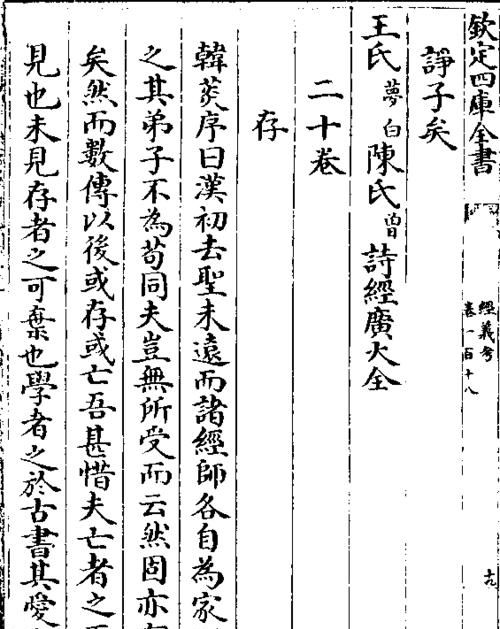 欽定四庫全書
經義考
卷一百十八
九
諍子矣
王氏夢白陳氏曾詩經廣大全
二十卷
存
韓菼序曰漢初去聖未遠而諸經師各自為家
之其弟子不為苟同夫豈無所受而云然固亦
矣然而數傳以後或存或亡吾甚惜夫亡者之
見也未見存者之可棄也學者之於古書其愛